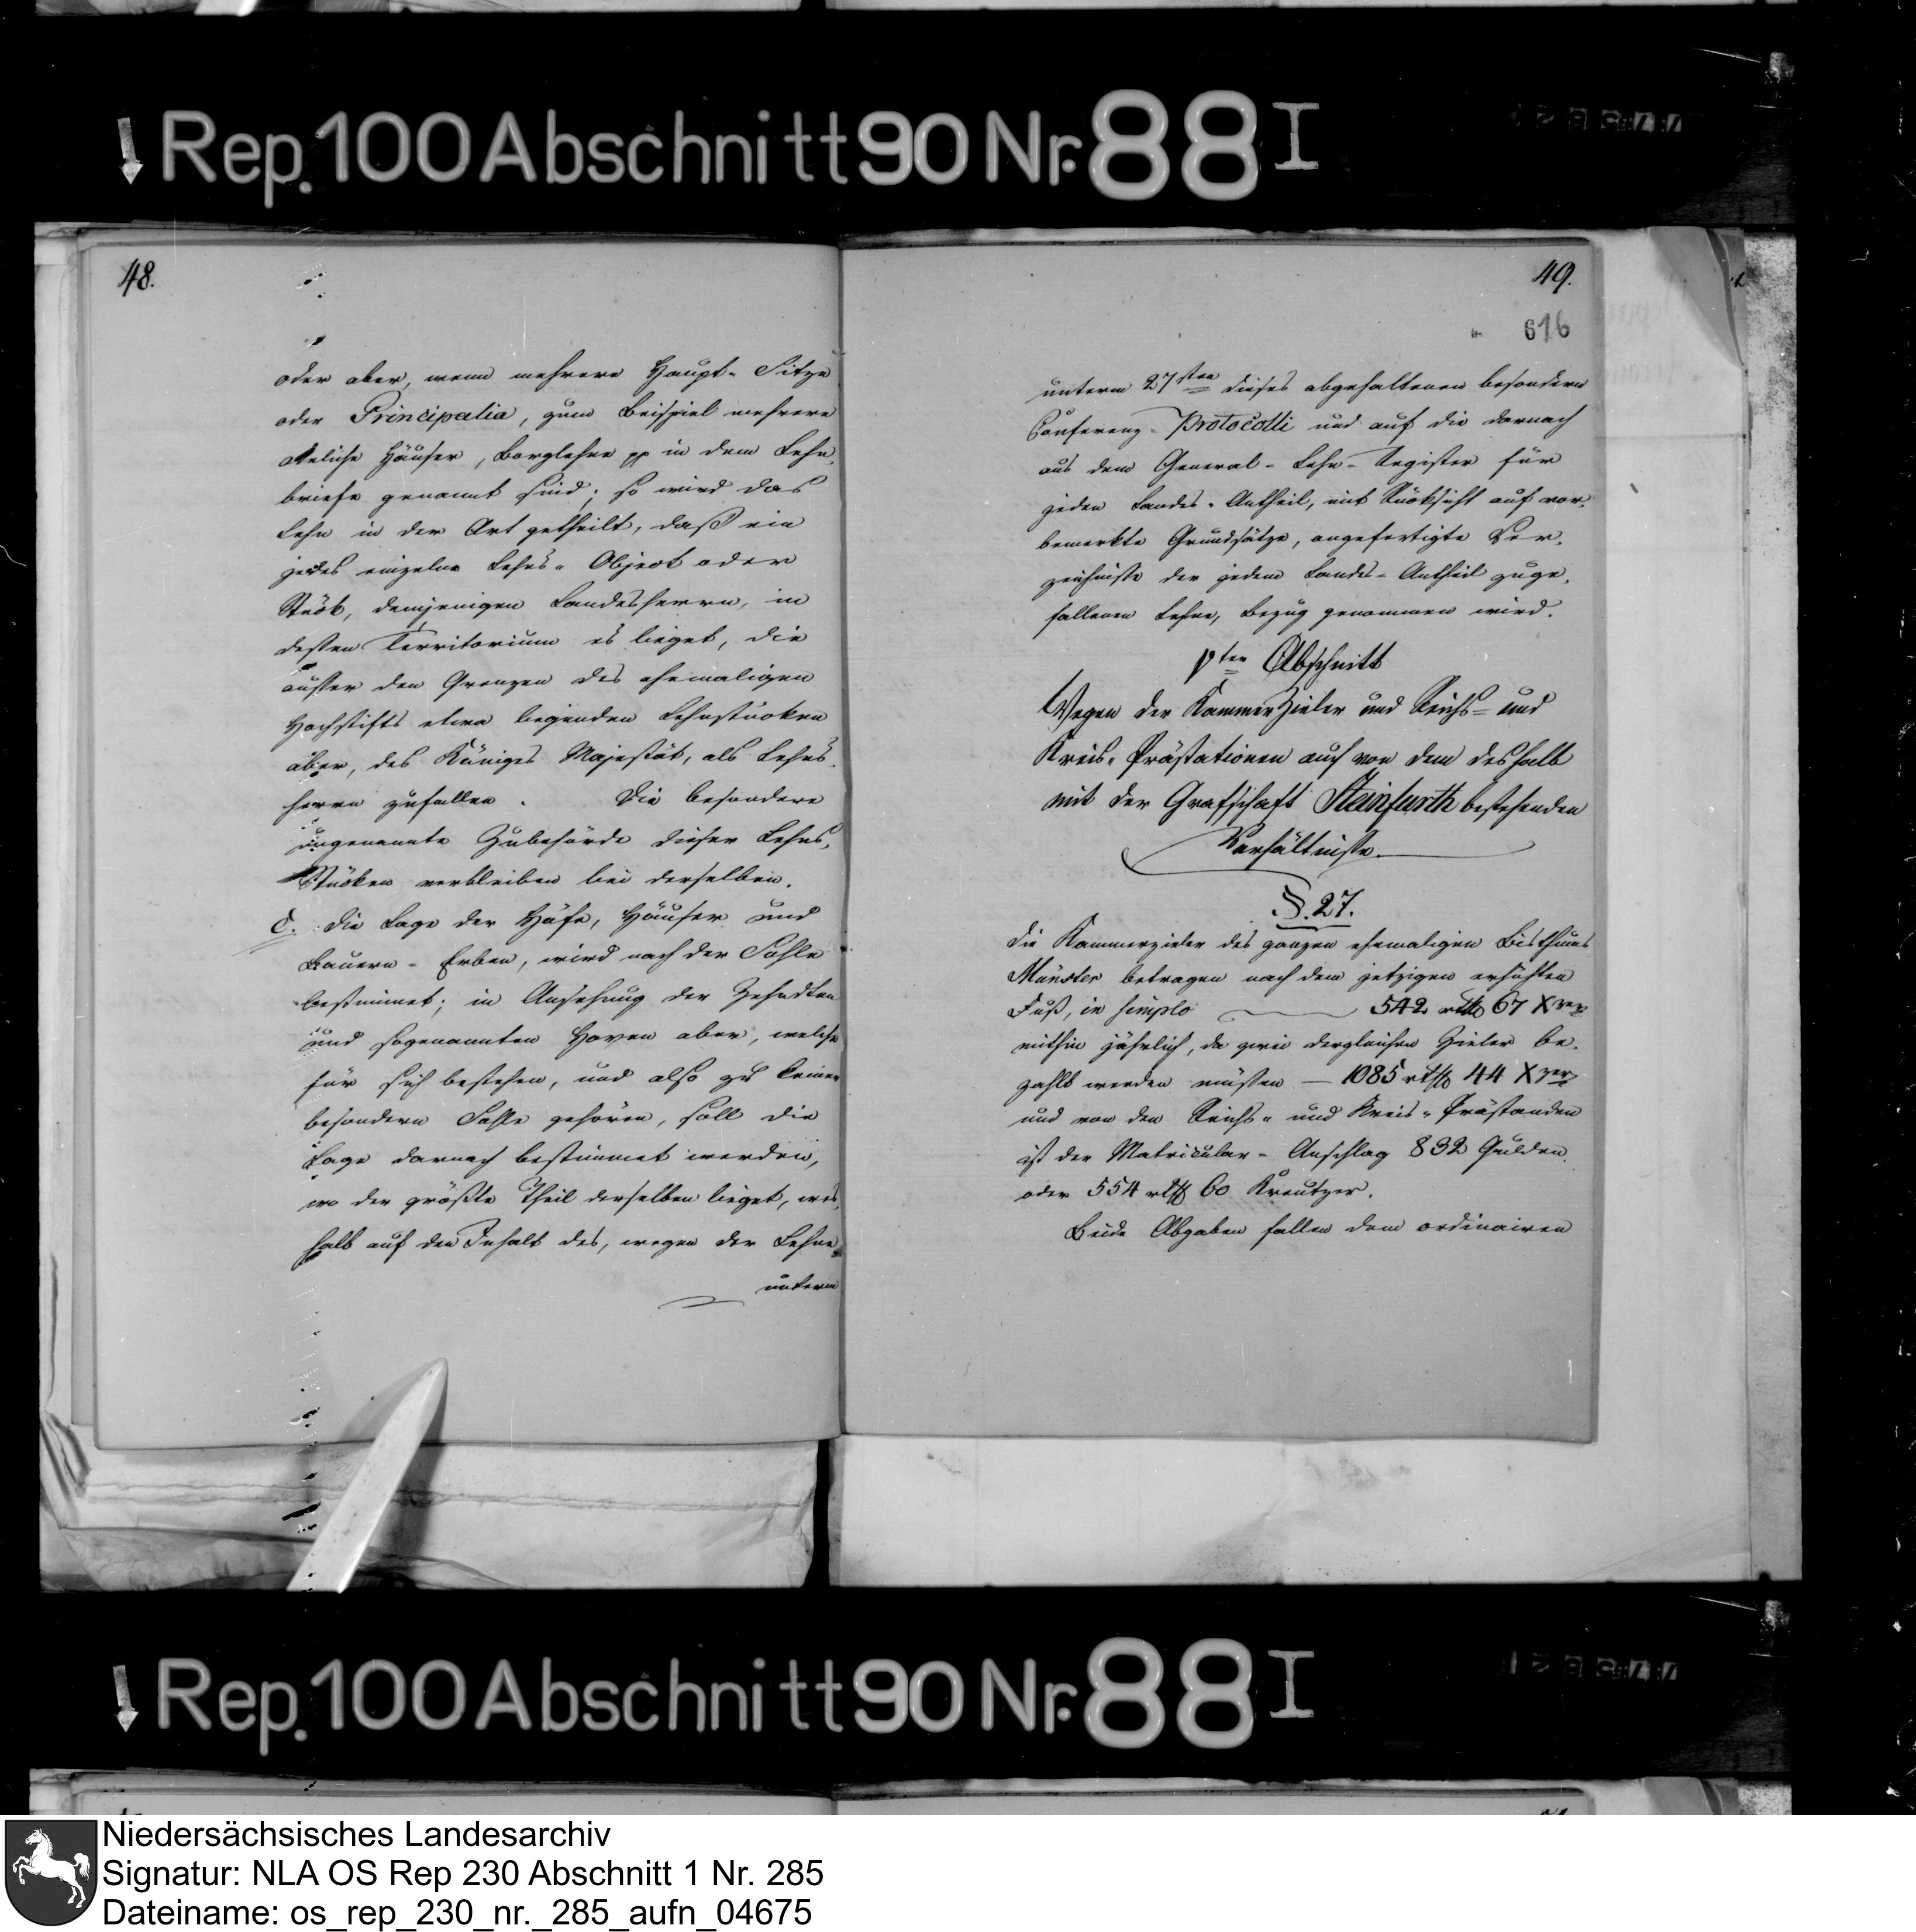 Rep. 100 Abschnitt 90 Nr. 88 I
48.
oder aber, wenn mehrere Haupt-Sitze
oder Principalia, zum Beispiel mehrere
Adeliche Häuser, Borglehne pp in dem Lehn-
briefe genannt sind; so wird das
Lehn in der Art getheilt, daß ein
jedes einzelne Lehns-Object oder
Stück, demjenigen Landesherrn, in
dessen Territorium es lieget, die
ausser den Grenzen des ehemaligen
Hochstifts etwa liegenden Lehnstücken
aber, des Königes Majestät, als Lehns-
herrn zufallen. Die besondere
ungenannte Zubehörde dieser Lehns-
Stücken verbleiben bei derselben.
C. Die Lage der Höfe, Häuser und
Bauern-Erben, wird nach der Sohle
bestimmet; in Ansehung der Zehndten
und sogenannten Hoven aber, welche
für sich bestehen, und also zu keiner
besondern Sohle gehören, soll die
Lage darnach bestimmet werden,
wo der größte Theil derselben lieget, wes-
halb auf den Inhalt des, wegen der Lehne
unterm
49.
616
unterm 27sten dieses abgehaltenen besondern
Conferenz-Protocolli und auf die darnach
aus dem General-Lehn-Register für
jeden Landes-Antheil, mit Rücksicht auf vor-
bemerkte Grundsätze, angefertigte Ver-
zeichnisse der jedem Landes-Antheil zuge-
fallenen Lehne, Bezug genommen wird.
Vter Abschnitt
Wegen der KammerZieler und Reichs- und
Kreis-Prästationen auch von dem deshalb
mit der Grafschaft Steinfurth bestehenden
Verhältnisse.
§. 27.
Die Kammerzieler des ganzen ehemaligen Bisthums
Münster betragen nach dem jetzigen erhöhten
Fuß, in simplo 542 rthl 67 Xzer
mithin jährlich, da zwei dergleichen Zieler be-
zahlt werden müssen — 1085 rthl 44 Xzer
und von den Reichs- und Kreis-Prästanden
ist der Matricular-Anschlag 832 Gulden
oder 554 rthl 60 Kreutzer.
Beide Abgaben fallen dem ordinairen
Rep. 100 Abschnitt 90 Nr. 88 I
Niedersächsisches Landesarchiv
Signatur: NLA OS Rep 230 Abschnitt 1 Nr. 285
Dateiname: os_rep_230_nr._285_aufn_04675